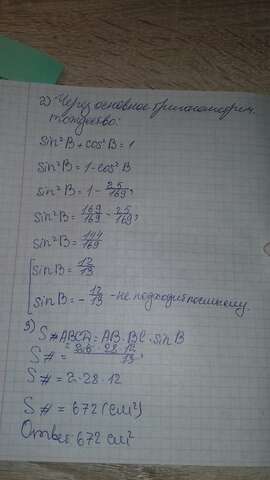 2) Через основное тригонометрич.
тождество:
sin²B + cos²B = 1
sin²B = 1 - cos²B
sin²B = 1 - 25/169;
sin²B = 169/169 - 25/169;
sin²B = 144/169
[ sin B = 12/13
sin B = - 12/13 - не подходит по смыслу.
3) S#ABCD = AB · BC · sin B
S# = 26 · 28 · 12 / 13;
S# = 2 · 28 · 12
S# = 672 (см²)
Ответ: 672 см²